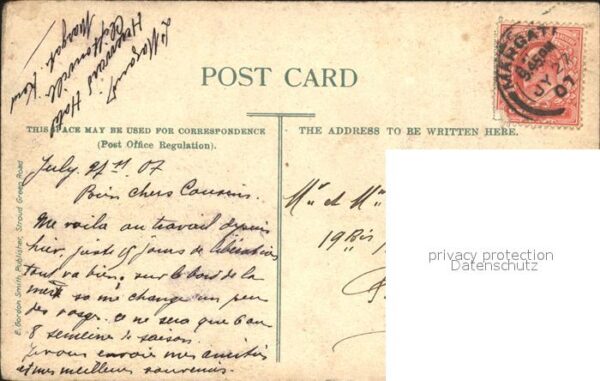 Hotel
Cliftonville
Margate Kent
POST CARD
MARGATE
JY 27
07
THIS SPACE MAY BE USED FOR CORRESPONDENCE
(Post Office Regulation).
THE ADDRESS TO BE WRITTEN HERE.
July 27 07
Bien chers Cousins.
Me voila au travail depuis
hier, juste 15 jours de
tout va bien, sur le bord de la
mer sa me change un peu
des vosges. ce ne sera que 6 ou
8 semeine de saison.
Je vous envoie mes amitiés
et mes meilleurs souvenirs.
Mr et Mme
19 Bis
E. Gordon Smith, Publisher, Stroud Green Road
privacy protection
Datenschutz